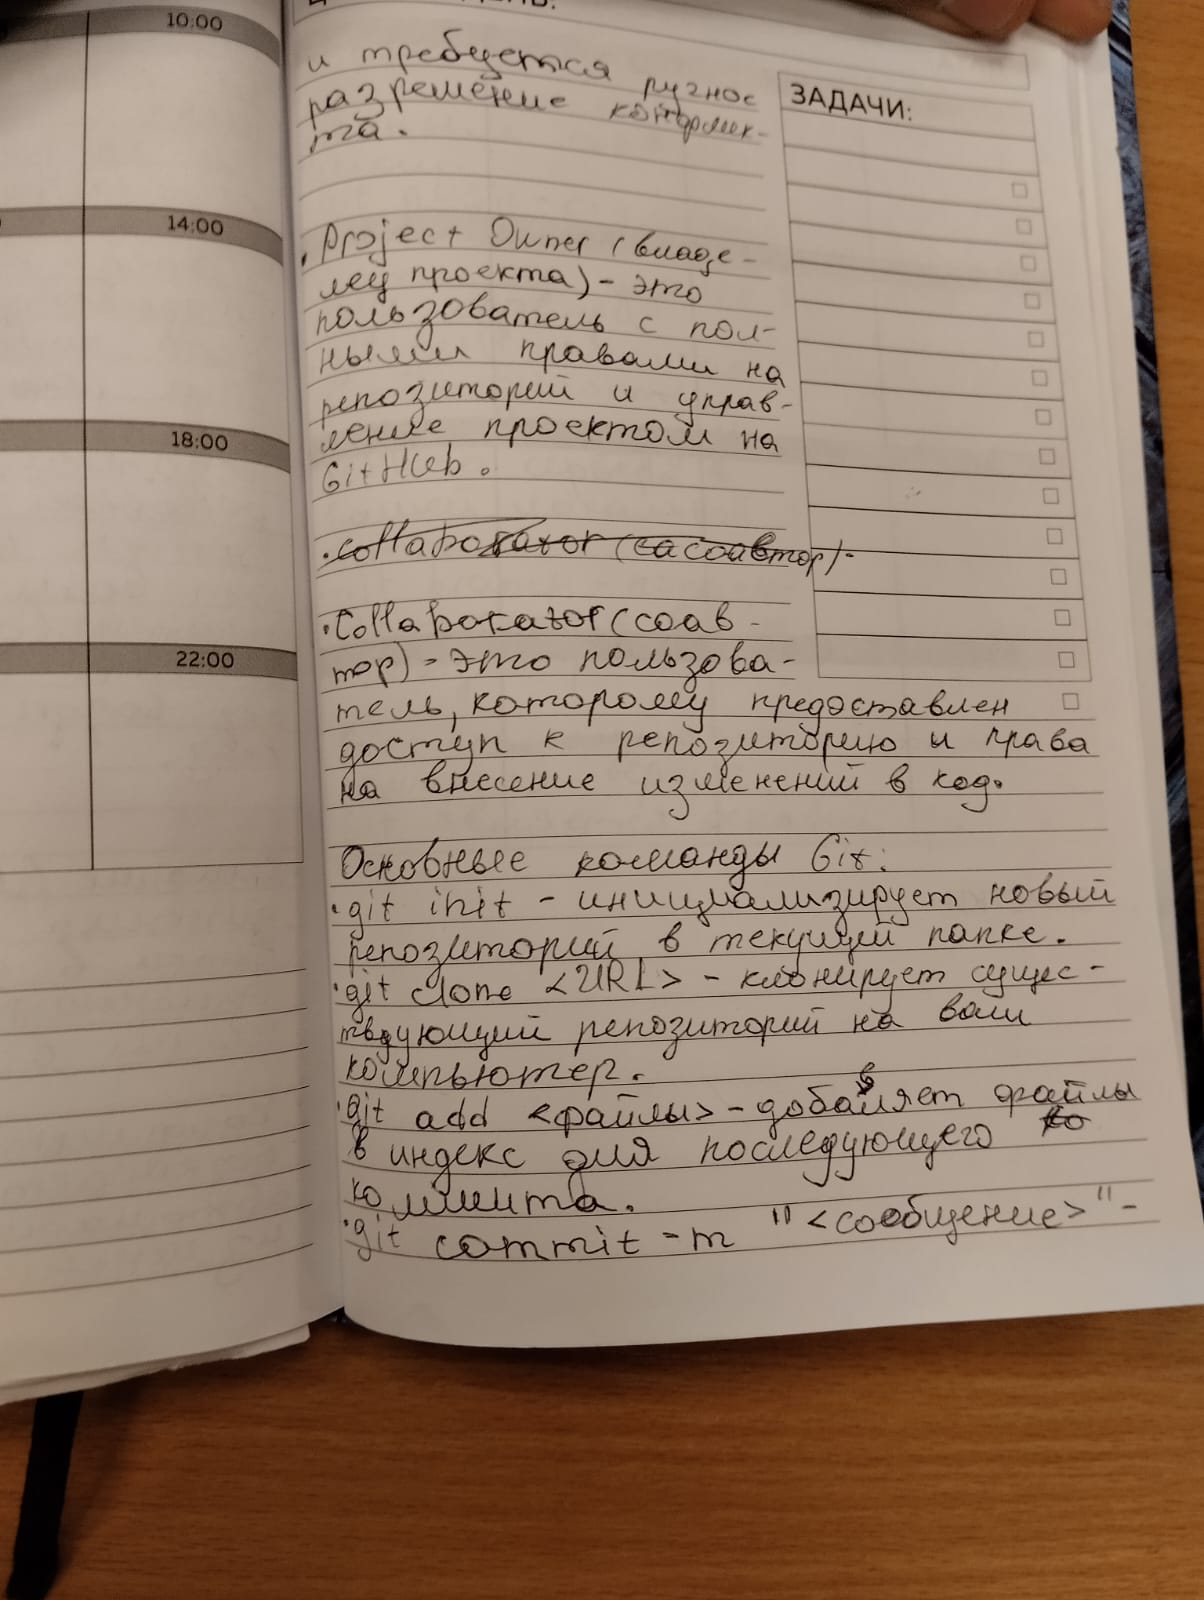 10:00
14:00
18:00
22:00
ЗАДАЧИ:
и требуется ручное
разрешение конфлик-
та.
• Project Owner (владе-
лец проекта) - это
пользователь с пол-
ными правами на
репозиторий и управ-
ление проектом на
GitHub.
• Collaborator (соавтор) -
• Collaborator (соав-
тор) - это пользова-
тель, которому предоставлен
доступ к репозиторию и права
на внесение изменений в код.
Основные команды Git:
• git init - инициализирует новый
репозиторий в текущей папке.
• git clone <URL> - клонирует сущес-
твующий репозиторий на ваш
компьютер.
• git add <файлы> - добавляет файлы
в индекс для последующего ко
коммита.
• git commit -m "<сообщение>" -